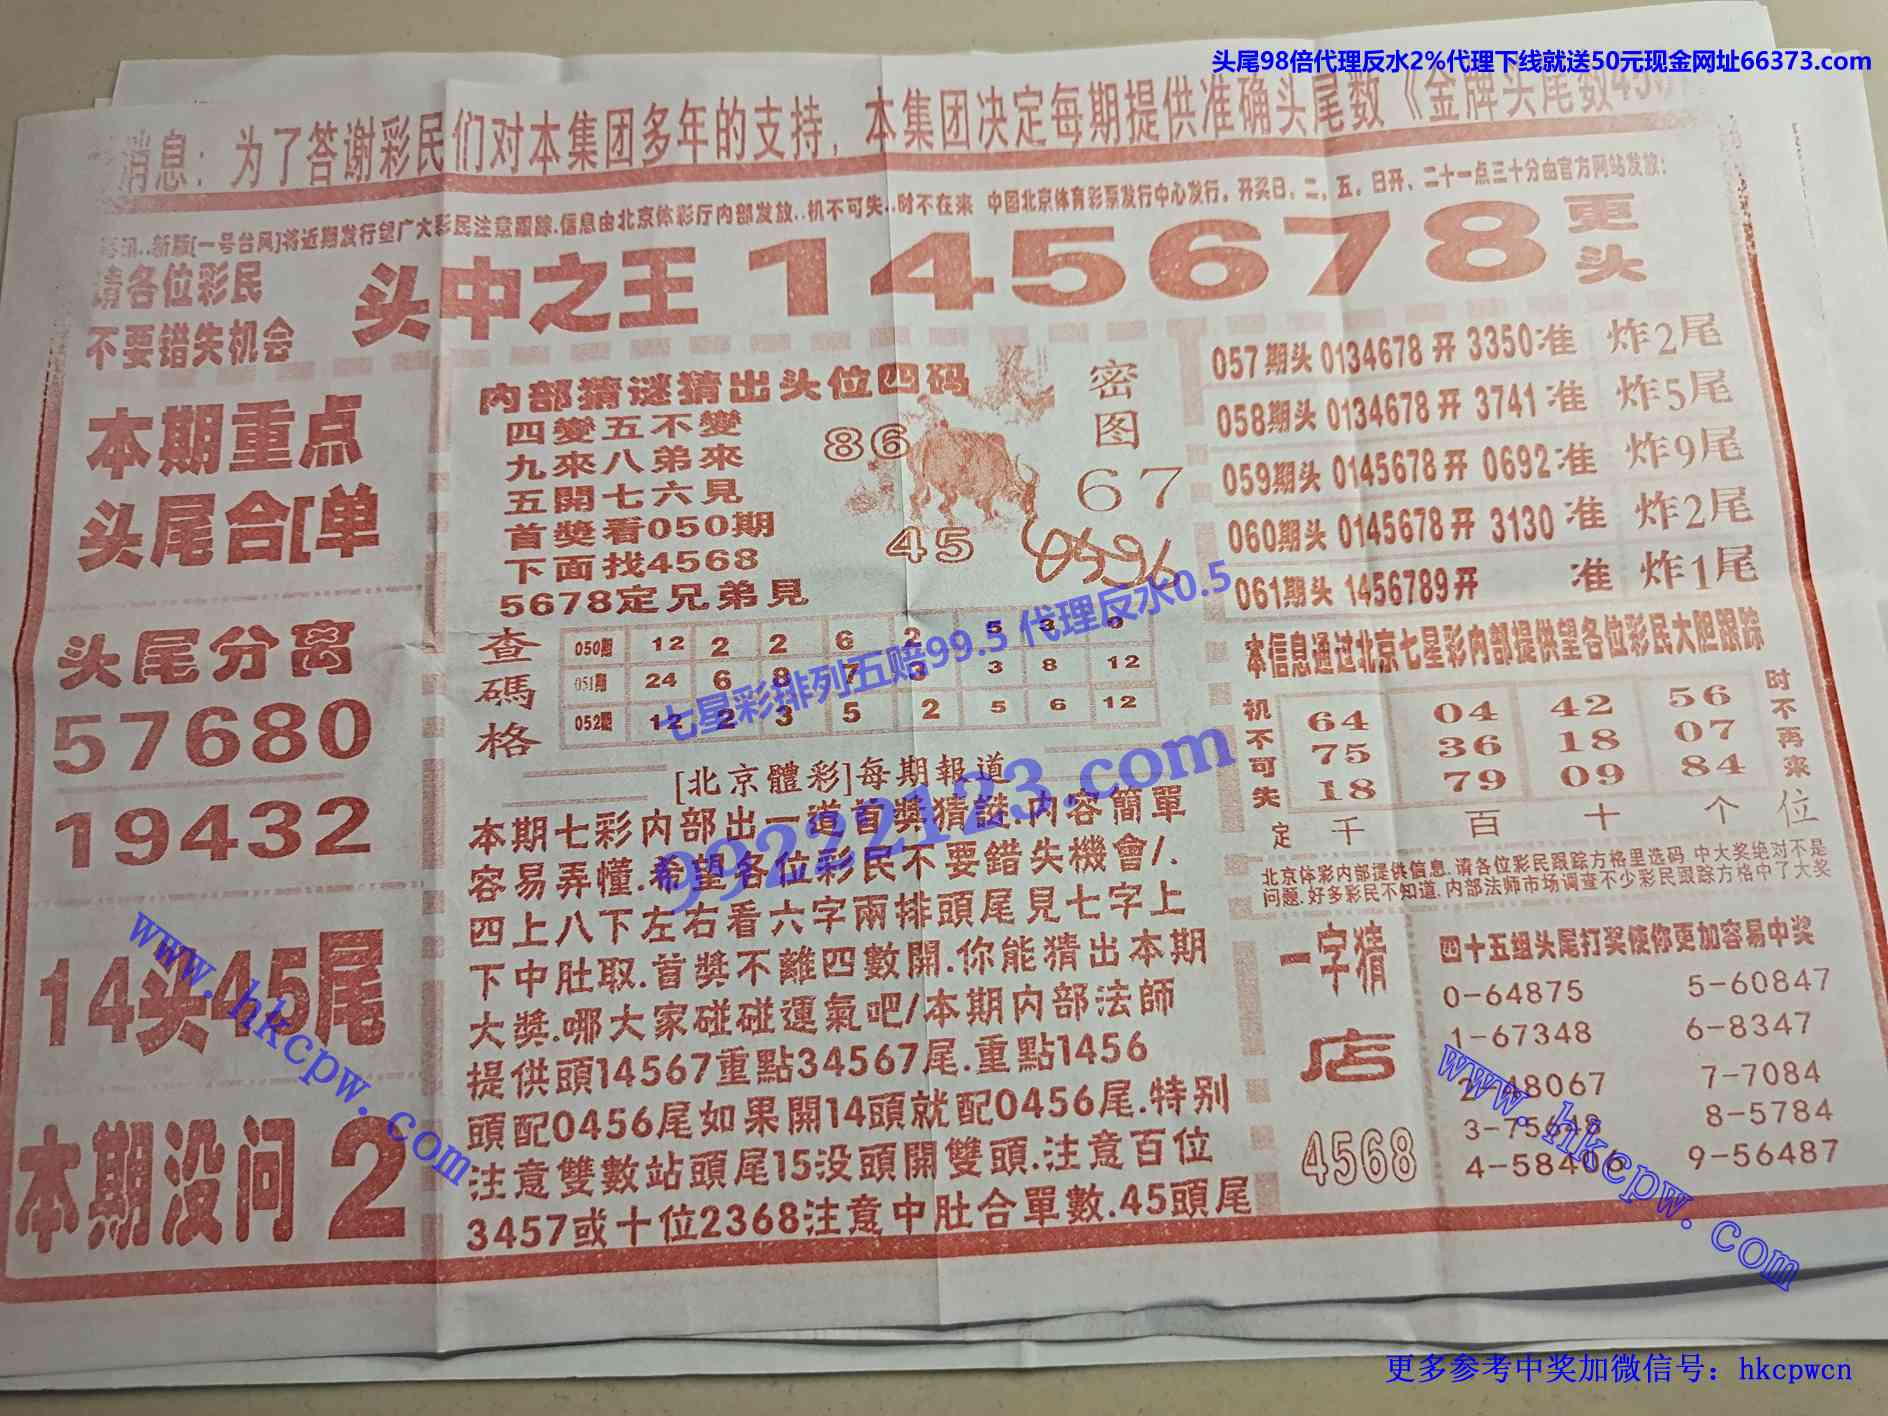 头尾98倍代理反水2%代理下线就送50元现金网址66373.com
消息：为了答谢彩民们对本集团多年的支持，本集团决定每期提供准确头尾数《金牌头尾数45
讯..新版[一号台风]将近期发行望广大彩民注意跟踪.信息由北京体彩厅内部发放..机不可失..时不在来 中国北京体育彩票发行中心发行。开奖日、二、五、日开、二十一点三十分由官方网站发放：
请各位彩民
不要错失机会
头中之王 145678 更头
本期重点
头尾合[单
头尾分离
57680
19432
14头45尾
本期没问 2
内部猜谜猜出头位四码
四變五不變
九來八弟來
五開七六見
首獎看050期
下面找4568
5678定兄弟見
86
45
密图
67
查碼格
050期 12 2 2 6 2 5 3 9
051期 24 6 8 7 3 3 8 12
052期 12 2 3 5 2 5 6 12
七星彩排列五赔99.5 代理反水0.5
99222123.com
[北京體彩]每期報道
本期七彩内部出一道首獎猜謎.内容簡單
容易弄懂.希望各位彩民不要錯失機會/.
四上八下左右看六字兩排頭尾見七字上
下中肚取.首獎不離四數開.你能猜出本期
大獎.哪大家碰碰運氣吧/本期内部法師
提供頭14567重點34567尾.重點1456
頭配0456尾如果開14頭就配0456尾.特别
注意雙數站頭尾15没頭開雙頭.注意百位
3457或十位2368注意中肚合單數.45頭尾
057期头 0134678 开 3350 准 炸2尾
058期头 0134678 开 3741 准 炸5尾
059期头 0145678 开 0692 准 炸9尾
060期头 0145678 开 3130 准 炸2尾
061期头 1456789 开 准 炸1尾
本信息通过北京七星彩内部提供望各位彩民大胆跟踪
机不可失
64 04 42 56
75 36 18 07
18 79 09 84
时不再来
定 千 百 十 个 位
北京体彩内部提供信息.请各位彩民跟踪方格里选码.中大奖绝对不是
问题.好多彩民不知道.内部法师市场调查不少彩民跟踪方格中了大奖
一字猜
店
4568
四十五组头尾打奖使你更加容易中奖
0-64875 5-60847
1-67348 6-8347
2-48067 7-7084
3-75648 8-5784
4-58406 9-56487
www.hkcpw.com
www.hkcpw.com
更多参考中奖加微信号：hkcpwcn